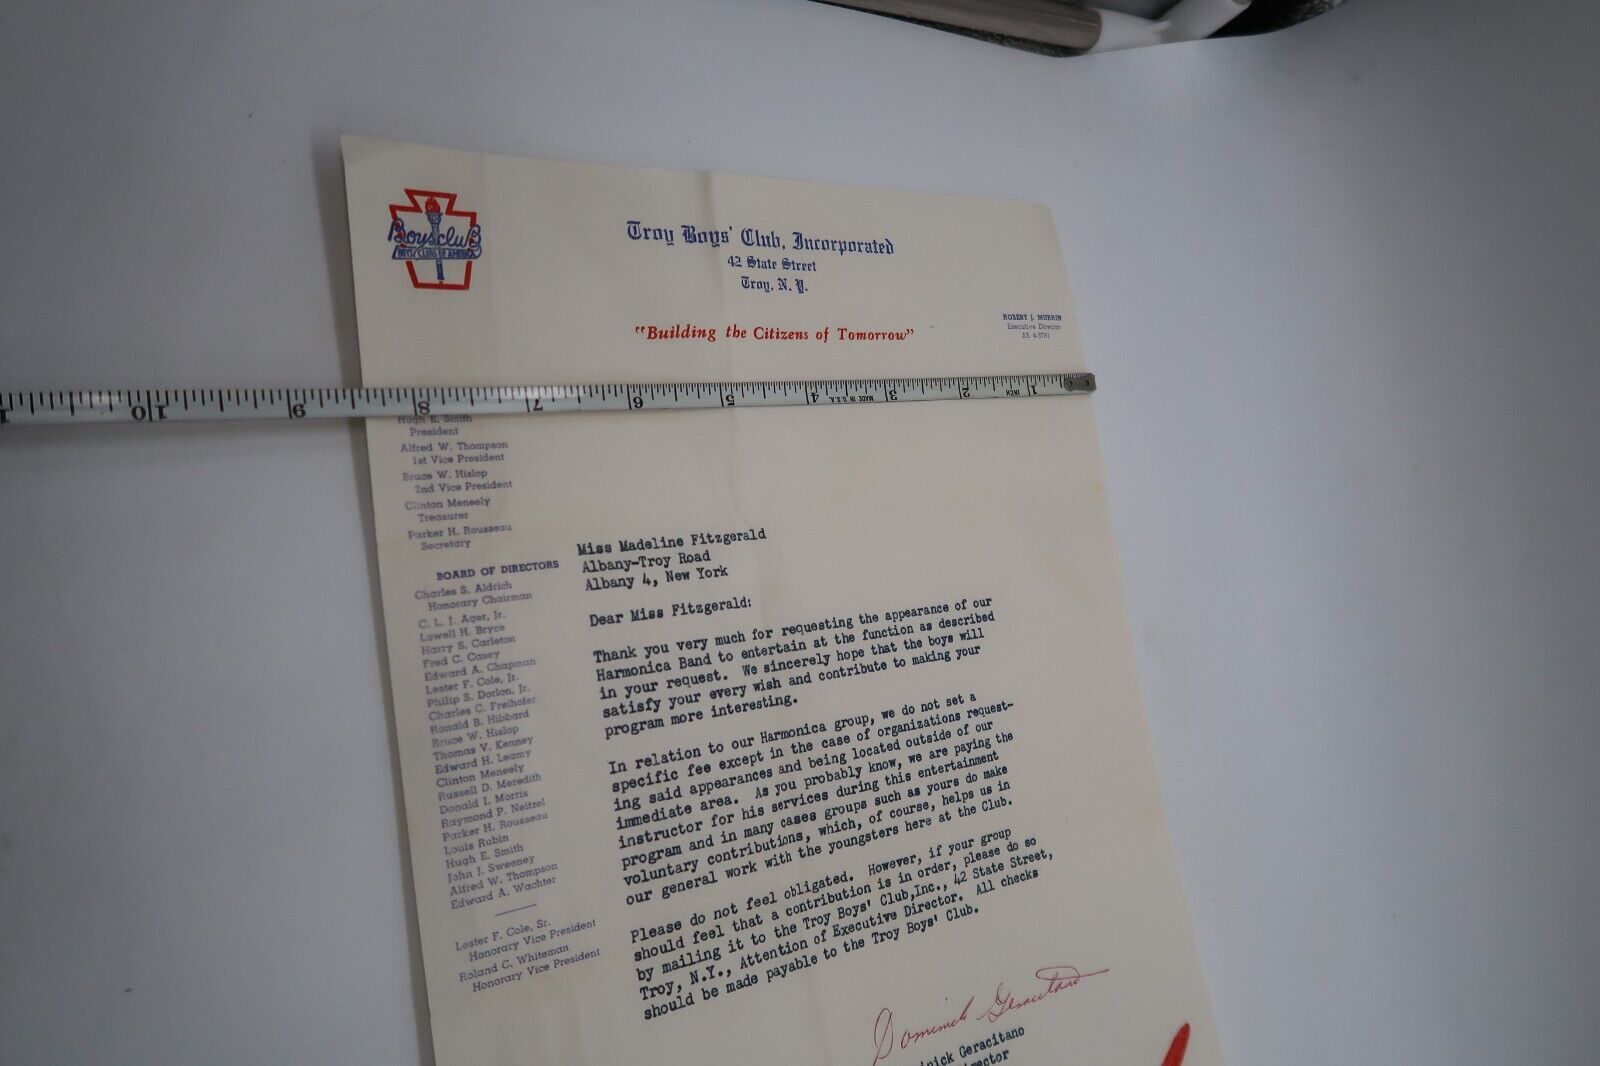 BoysClub
BOYS' CLUBS OF AMERICA
Troy Boys' Club, Incorporated
42 State Street
Troy, N. Y.
"Building the Citizens of Tomorrow"
ROBERT J. MURRIN
Executive Director
AS 4-3781
1 2 3 4 5 6 7 8 9 10
INCH
MADE IN U.S.A.
Hugh E. Smith
President
Alfred W. Thompson
1st Vice President
Bruce W. Hislop
2nd Vice President
Clinton Meneely
Treasurer
Parker H. Rousseau
Secretary
BOARD OF DIRECTORS
Charles S. Aldrich
Honorary Chairman
C. L. J. Ager, Jr.
Lowell H. Bryce
Harry S. Carleton
Fred C. Casey
Edward A. Chapman
Lester F. Cole, Jr.
Philip S. Dorlon, Jr.
Charles C. Freihofer
Ronald B. Hibbard
Bruce W. Hislop
Thomas V. Kenney
Edward H. Leamy
Clinton Meneely
Russell D. Meredith
Donald I. Morris
Raymond P. Neitzel
Parker H. Rousseau
Louis Rubin
Hugh E. Smith
John J. Sweeney
Alfred W. Thompson
Edward A. Wachter
Lester F. Cole, Sr.
Honorary Vice President
Roland C. Whiteman
Honorary Vice President
Miss Madeline Fitzgerald
Albany-Troy Road
Albany 4, New York
Dear Miss Fitzgerald:
Thank you very much for requesting the appearance of our
Harmonica Band to entertain at the function as described
in your request. We sincerely hope that the boys will
satisfy your every wish and contribute to making your
program more interesting.
In relation to our Harmonica group, we do not set a
specific fee except in the case of organizations request-
ing said appearances and being located outside of our
immediate area. As you probably know, we are paying the
instructor for his services during this entertainment
program and in many cases groups such as yours do make
voluntary contributions, which, of course, helps us in
our general work with the youngsters here at the Club.
Please do not feel obligated. However, if your group
should feel that a contribution is in order, please do so
by mailing it to the Troy Boys' Club,Inc., 42 State Street,
Troy, N.Y., Attention of Executive Director. All checks
should be made payable to the Troy Boys' Club.
Dominick Geracitano
inick Geracitano
rector